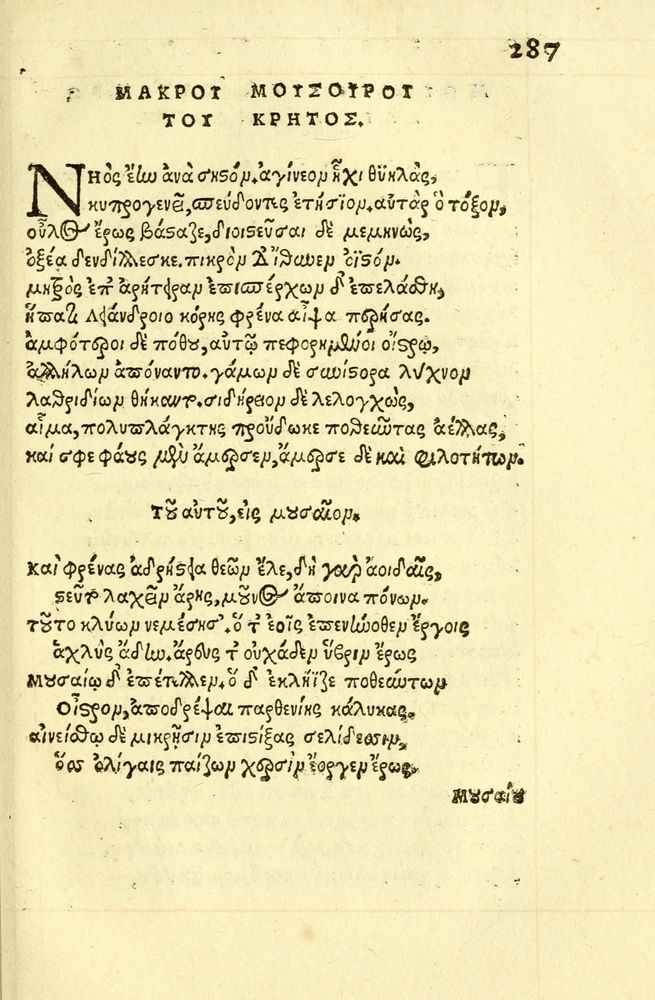 287
ΜΑΚΡΟΥ ΜΟΥΣΟΥΡΟΥ
ΤΟΥ ΚΡΗΤΟΣ.
Νηὸς ἔσω ἀνὰ σηστόν. ἀγίνεον ᾗχι θϋηλὰς,
κυπρογενεῖ, σπεύδοντες ἐτήσιον. αὐτὰρ ὁ τόξον,
οὖλος ἔρως βάσαζε, διοιστεῦσαι δὲ μεμηνὼς,
ὀξέα δενδίλλεσκε. πικρὸν δ' ἴθωεν ὀϊστόν.
μητρὸς ἐπ' ἀρήτειραν ἐπισπέρχων δ' ἐπελάσθη,
ἥπατι λῃάνδροιο κόρης φρένα αἶψα περήσας.
ἀμφότεροι δὲ πόθου, αὐτῷ πεφορημένοι οἴστρῳ,
ἀλλήλων ἀπόναντο. γάμων δὲ συνίστορα λύχνον
λαθριδίων θήκαντο. σιδήρειον δὲ λελογχὼς,
αἷμα, πολυπλάγκτης προὔδωκε ποθεῦντας ἀέλλας,
καί σφε φάους μὲν ἄμερσεν, ἄμερσε δὲ καὶ φιλοτήτων.
Τοῦ αὐτοῦ, εἰς μουσαῖον.
Καὶ φρένας ἀδρήστεια θεῶν ἕλε, δὴ γὰρ ἀοιδαῖς,
λαχεῖν ἄρης, μοῦνος ἄποινα πόνων.
τοῦτο κλύων νεμέσησ'. ὅ τ' ἑοῖς ἐπενήνοθεν ἔργοις
ἀχλὺς τ' οὐχάδεν ὕβριν ἔρως
Μουσαίῳ δ' ἐπέτελλεν. ὁ δ' ἐκλήϊζε ποθεύντων
Οἶστρον, ἀποδρέψαι παρθενίης κάλυκας.
αἰνείσθω δὲ μικρῇσιν ἐπιστίξας σελίδεσσιν,
ὅσσ' ὀλίγαις παίζων χερσὶν ἔοργεν ἔρως.
Μουσαίου